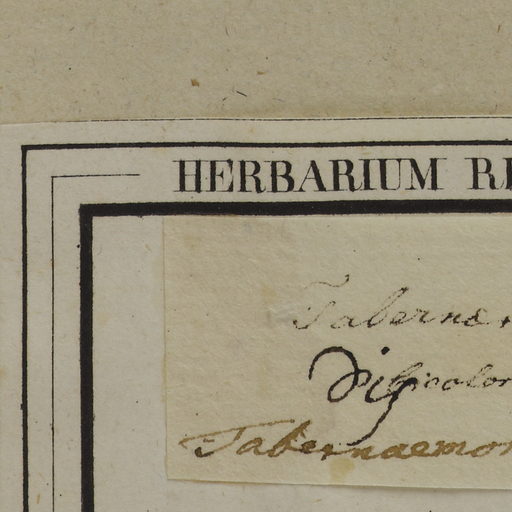 HERBARIUM RE
Tabernæ
discolor
Tabernaemon